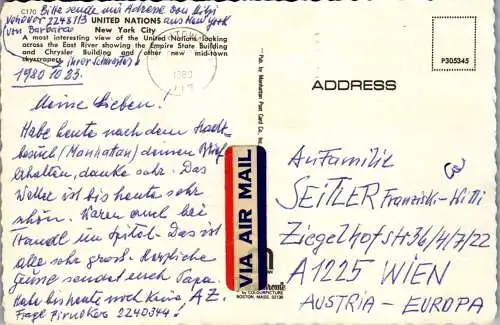 C170 Bitte sende mir Adresse von Gitzi
UNITED NATIONS aus New York
New York City
von Barbara
A most interesting view of the United Nations looking
across the East River showing the Empire State Building
and Chrysler Building and other new mid-town
skyscrapers.
ihrer Schwester!
1980 10 23.
Meine Lieben!
Habe heute nach dem Stadt-
besuch (Manhattan) deinen Brief
erhalten, danke sehr. Das
Wetter ist bis heute sehr
schön. Waren auch bei
Traudl im Spital. Das ist
alles sehr groß. Herzliche
Grüsse sendet euch Papa.
Habe bis heute noch keine A Z.
Frage Pirnutka 2240344!
1980
Pub. by Manhattan Post Card Co., Inc.
VIA AIR MAIL
by COLOURPICTURE
BOSTON, MASS. 02130
P305345
ADDRESS
An Familie
SEITLER Franziska-Willi
Ziegelhofstr 36/4/7/22
A1225 WIEN
AUSTRIA - EUROPA